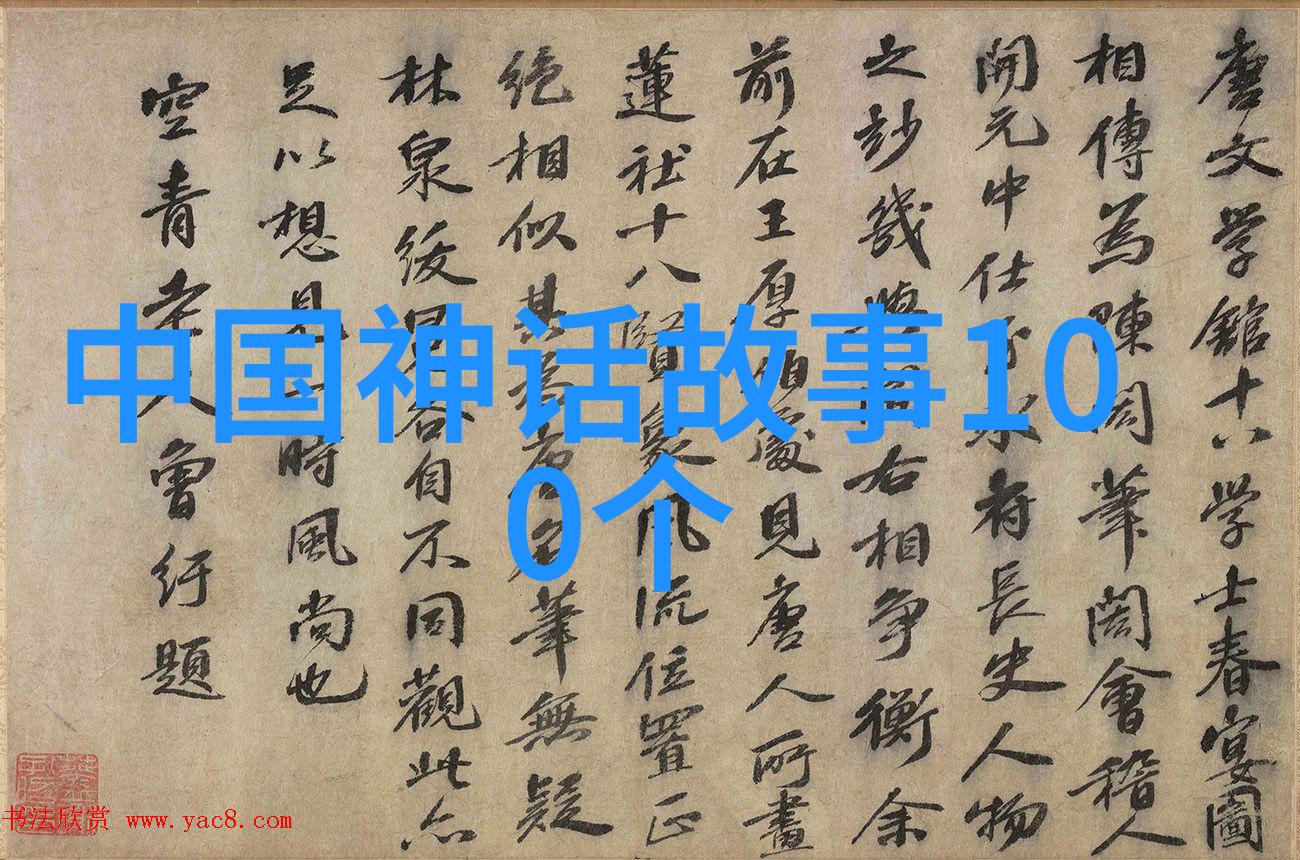 唐文学館十八学士春宴圖
相傳為陳闳筆闳會稽人
開元中仕永府長史人物
之妙幾與閻右相争衡余
前在王厚伯處見唐人所畫
蓮社十八賢象風流位置正
绝相似其為唐名筆無疑
林泉自不同觀此亦
足以想見一時風尚也
空青老人曾紆題
中国神话故事10
0个
书法欣赏 www.yac8.com